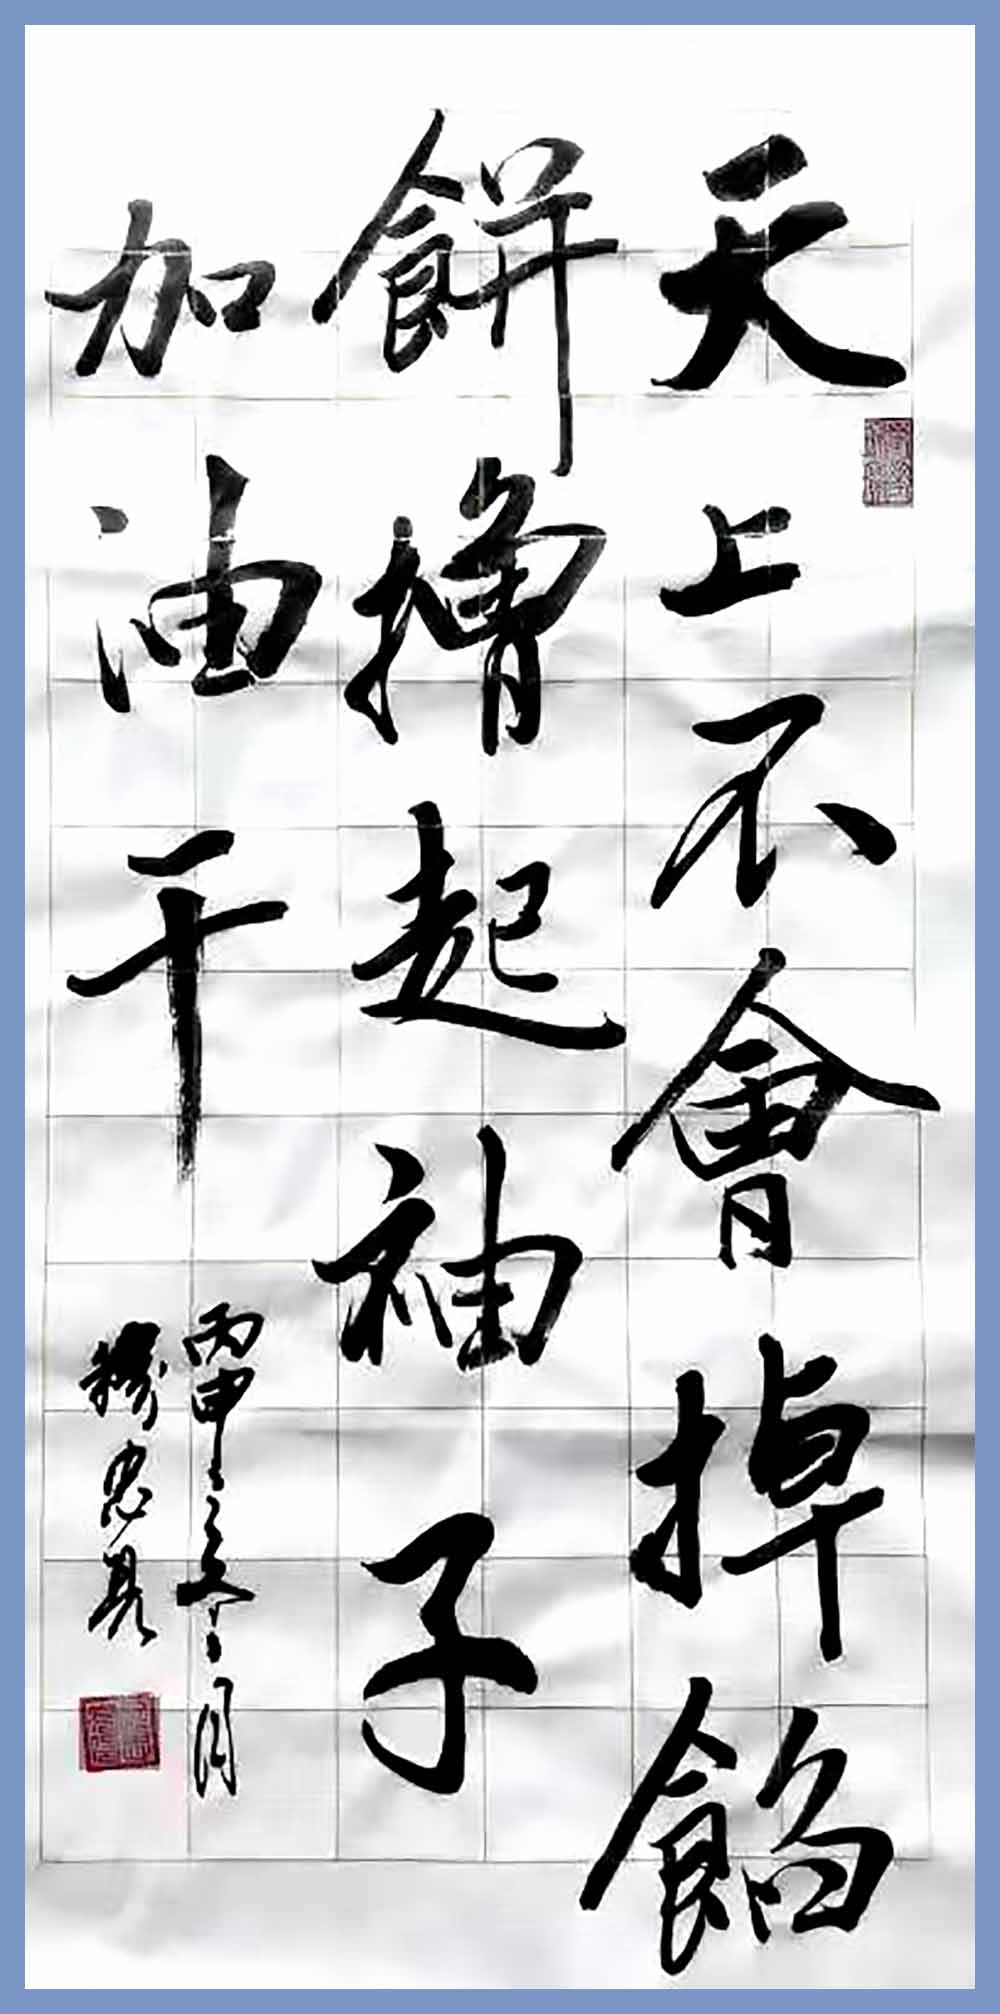 天上不會掉餡
餅擼起袖子
加油干
丙申之冬月
穆忠其